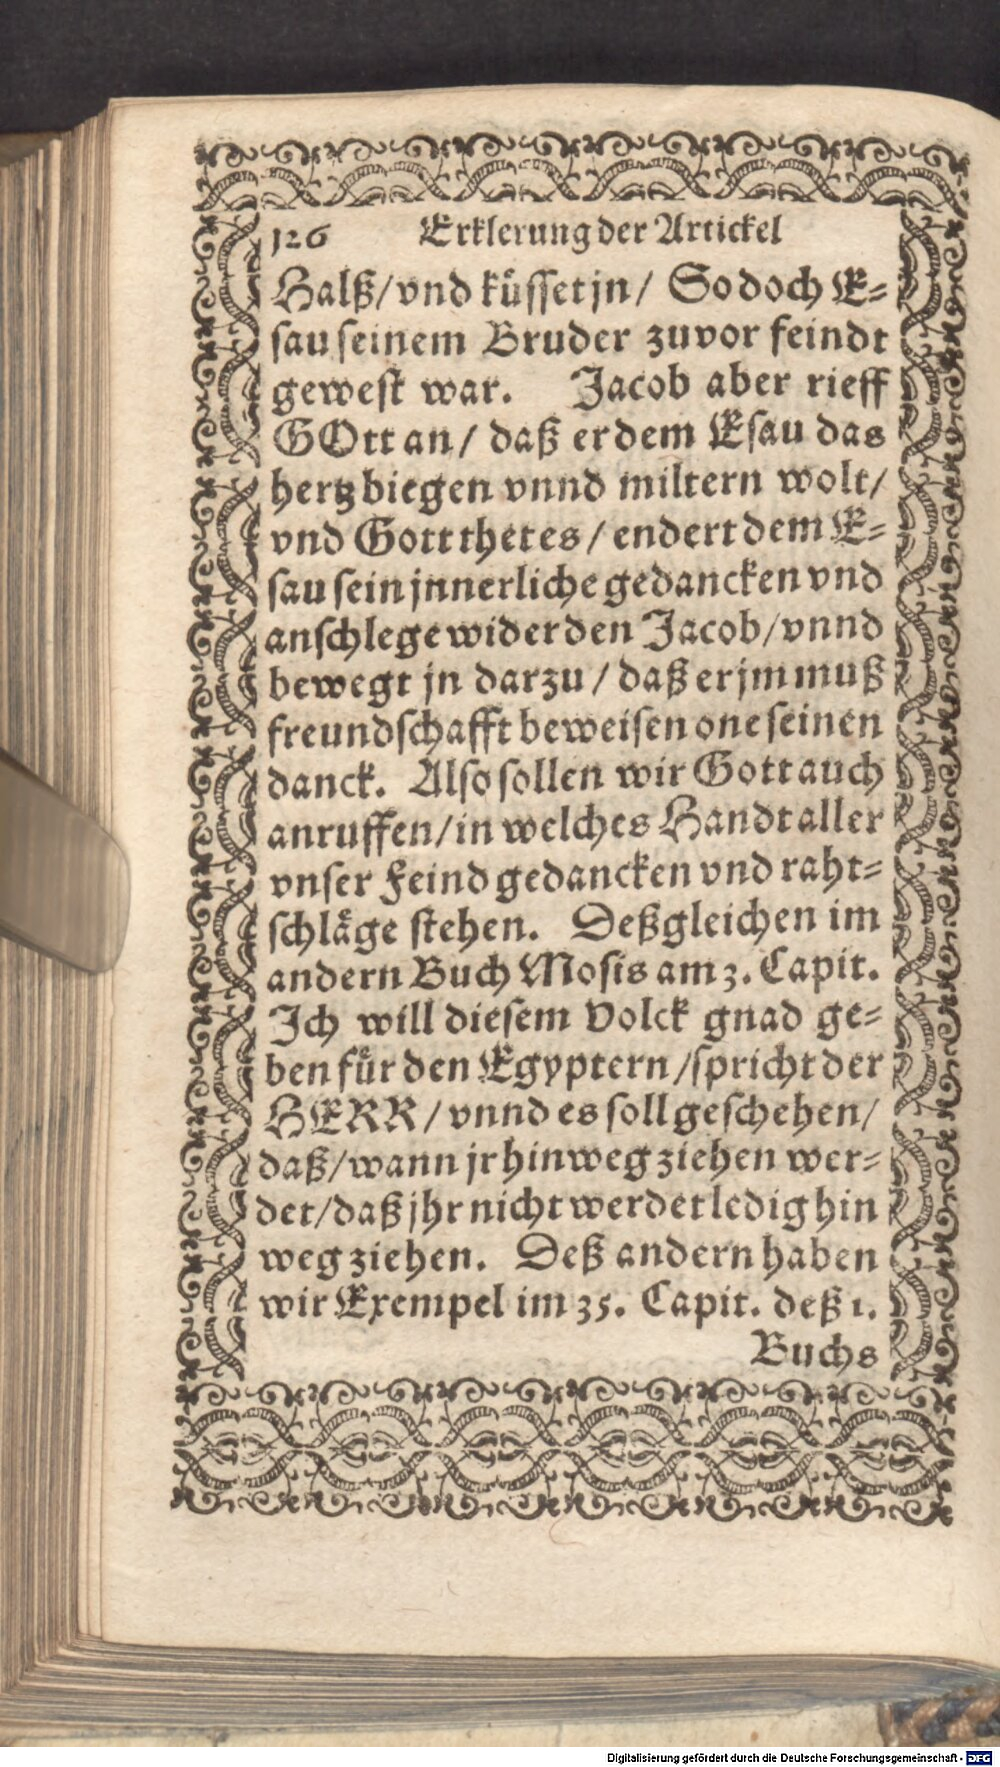 126 Erklerung der Artickel
Halß/ vnd küsset jn/ So doch E=
sau seinem Bruder zuvor feindt
gewest war. Jacob aber rieff
GOtt an/ daß er dem Esau das
hertz biegen vnnd miltern wolt/
vnd Gott thet es/ endert dem E=
sau sein jnnerliche gedancken vnd
anschlege wider den Jacob/ vnnd
bewegt jn darzu/ daß er jm muß
freundschafft beweisen one seinen
danck. Also sollen wir Gott auch
anruffen/ in welches Handt aller
vnser Feind gedancken vnd raht=
schlaͤge stehen. Deßgleichen im
andern Buch Mosis am 3. Capit.
Ich will diesem Volck gnad ge=
ben für den Egyptern/ spricht der
HERR/ vnnd es soll geschehen/
daß/ wann jr hinweg ziehen wer=
det/ daß jhr nicht werdet ledig hin
weg ziehen. Deß andern haben
wir Exempel im 35. Capit. deß 1.
Buchs
Digitalisierung gefördert durch die Deutsche Forschungsgemeinschaft - DFG